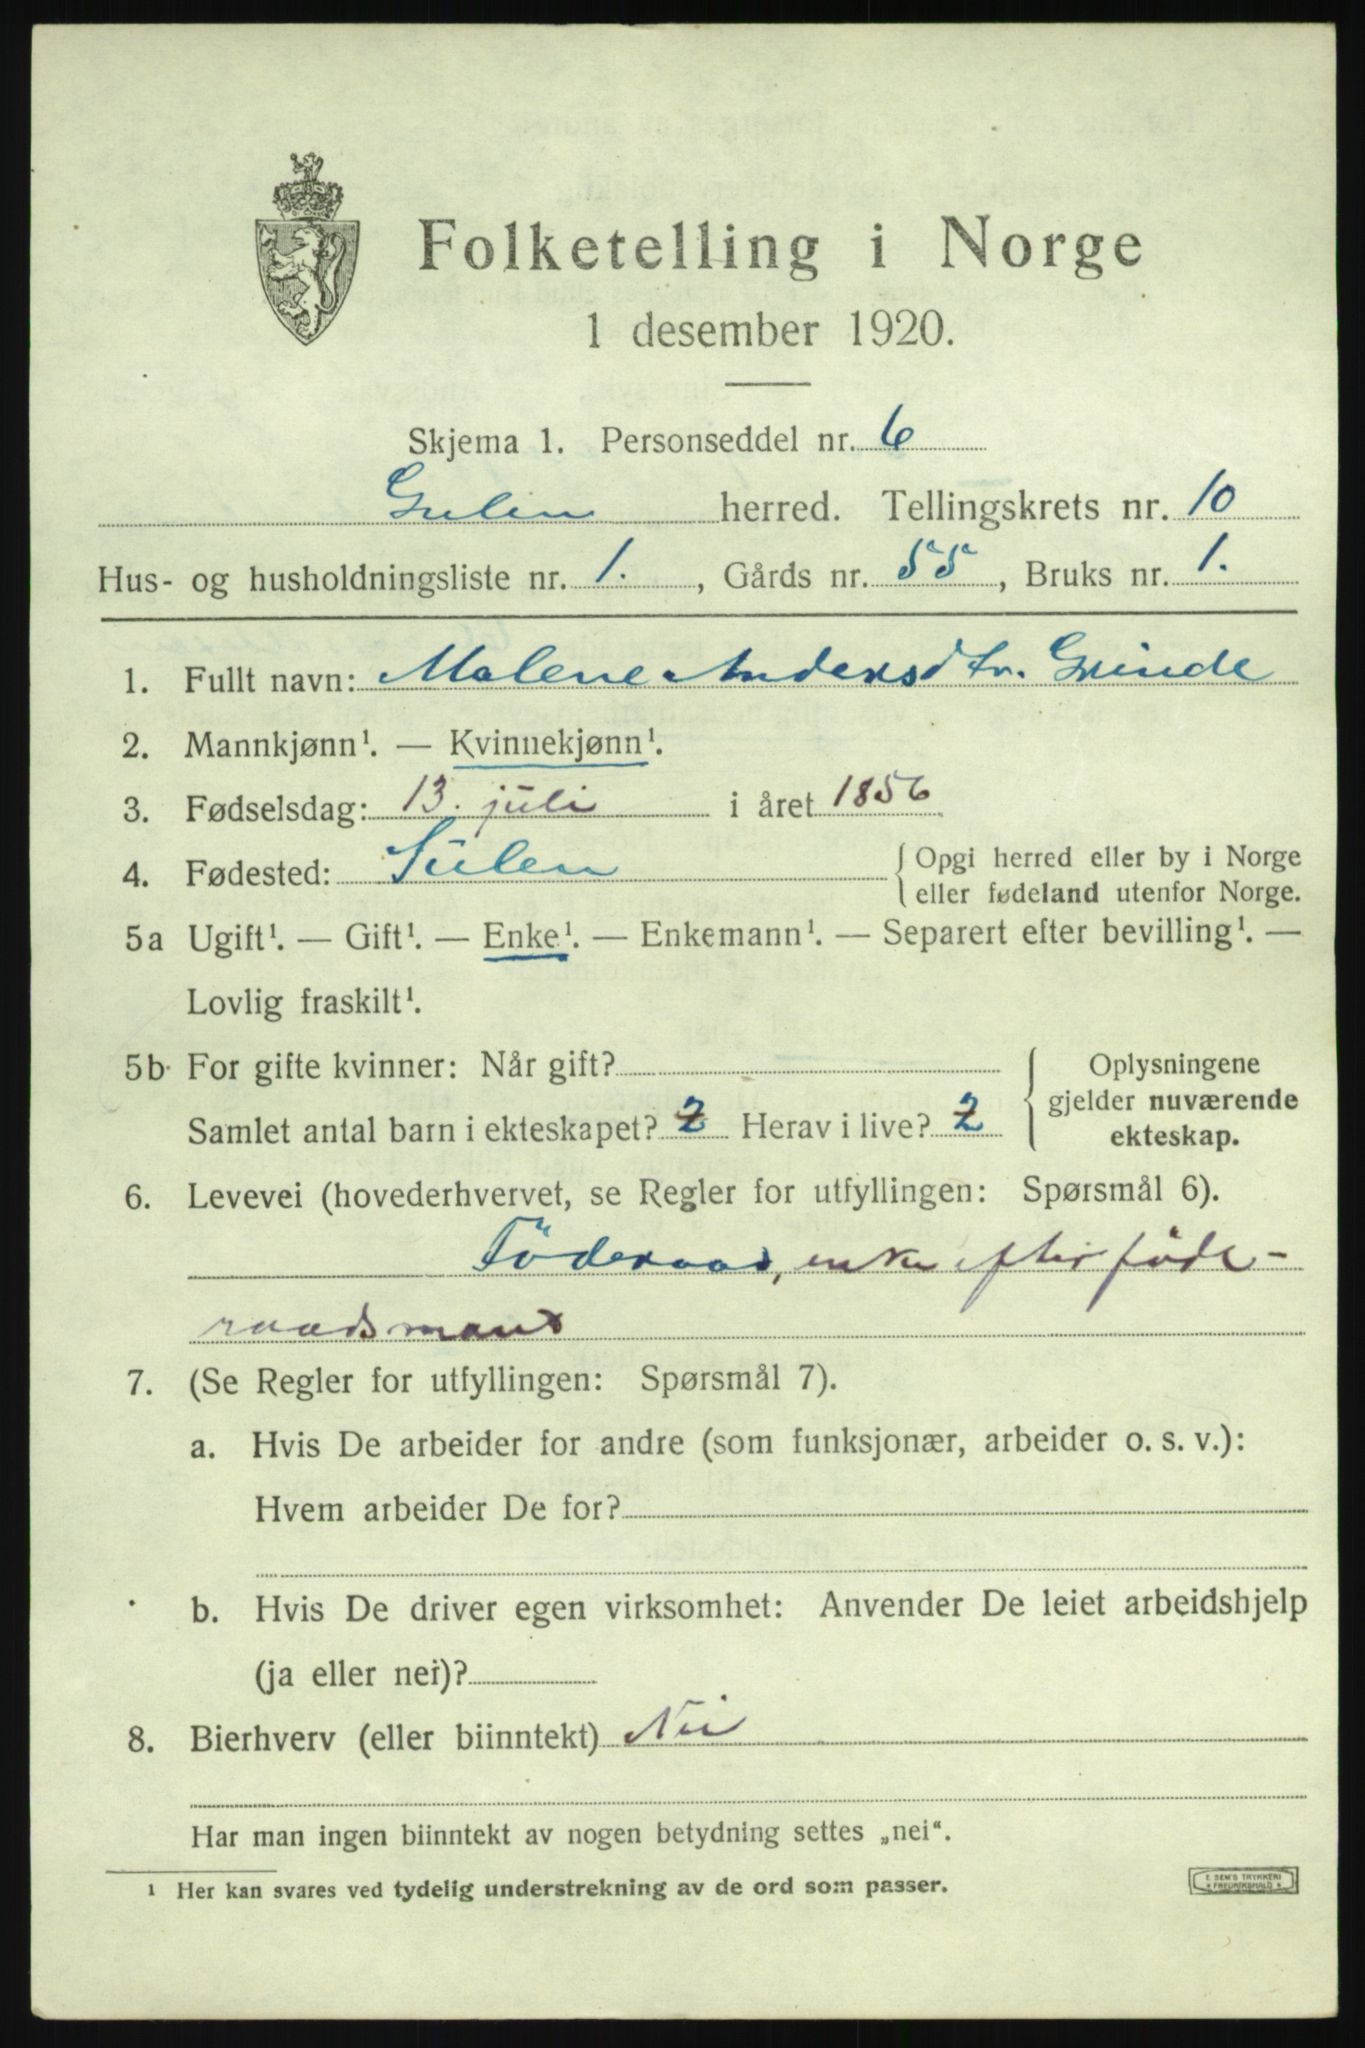 Folketelling i Norge
1 desember 1920.
Skjema 1. Personseddel nr. 6
Gulen herred. Tellingskrets nr. 10
Hus- og husholdningsliste nr. 1. , Gårds nr. 55 , Bruks nr. 1.
1. Fullt navn: Malene Andersdtr. Grinde
2. Mannkjønn¹. — Kvinnekjønn¹.
3. Fødselsdag: 13. juli i året 1856
4. Fødested: Sulen { Opgi herred eller by i Norge
eller fødeland utenfor Norge.
5a Ugift¹. — Gift¹. — Enke¹. — Enkemann¹. — Separert efter bevilling¹. —
Lovlig fraskilt¹.
5b For gifte kvinner: Når gift?
Samlet antal barn i ekteskapet? 2 Herav i live? 2
{ Oplysningene
gjelder nuværende
ekteskap.
6. Levevei (hovederhvervet, se Regler for utfyllingen: Spørsmål 6).
Föderaad, enke efter föde-
raadsmand
7. (Se Regler for utfyllingen: Spørsmål 7).
a. Hvis De arbeider for andre (som funksjonær, arbeider o. s. v.):
Hvem arbeider De for?
b. Hvis De driver egen virksomhet: Anvender De leiet arbeidshjelp
(ja eller nei)?
8. Bierhverv (eller biinntekt) Nei
Har man ingen biinntekt av nogen betydning settes „nei“.
¹ Her kan svares ved tydelig understrekning av de ord som passer.
E. SEM'S TRYKKERI
* FREDRIKSHALD *